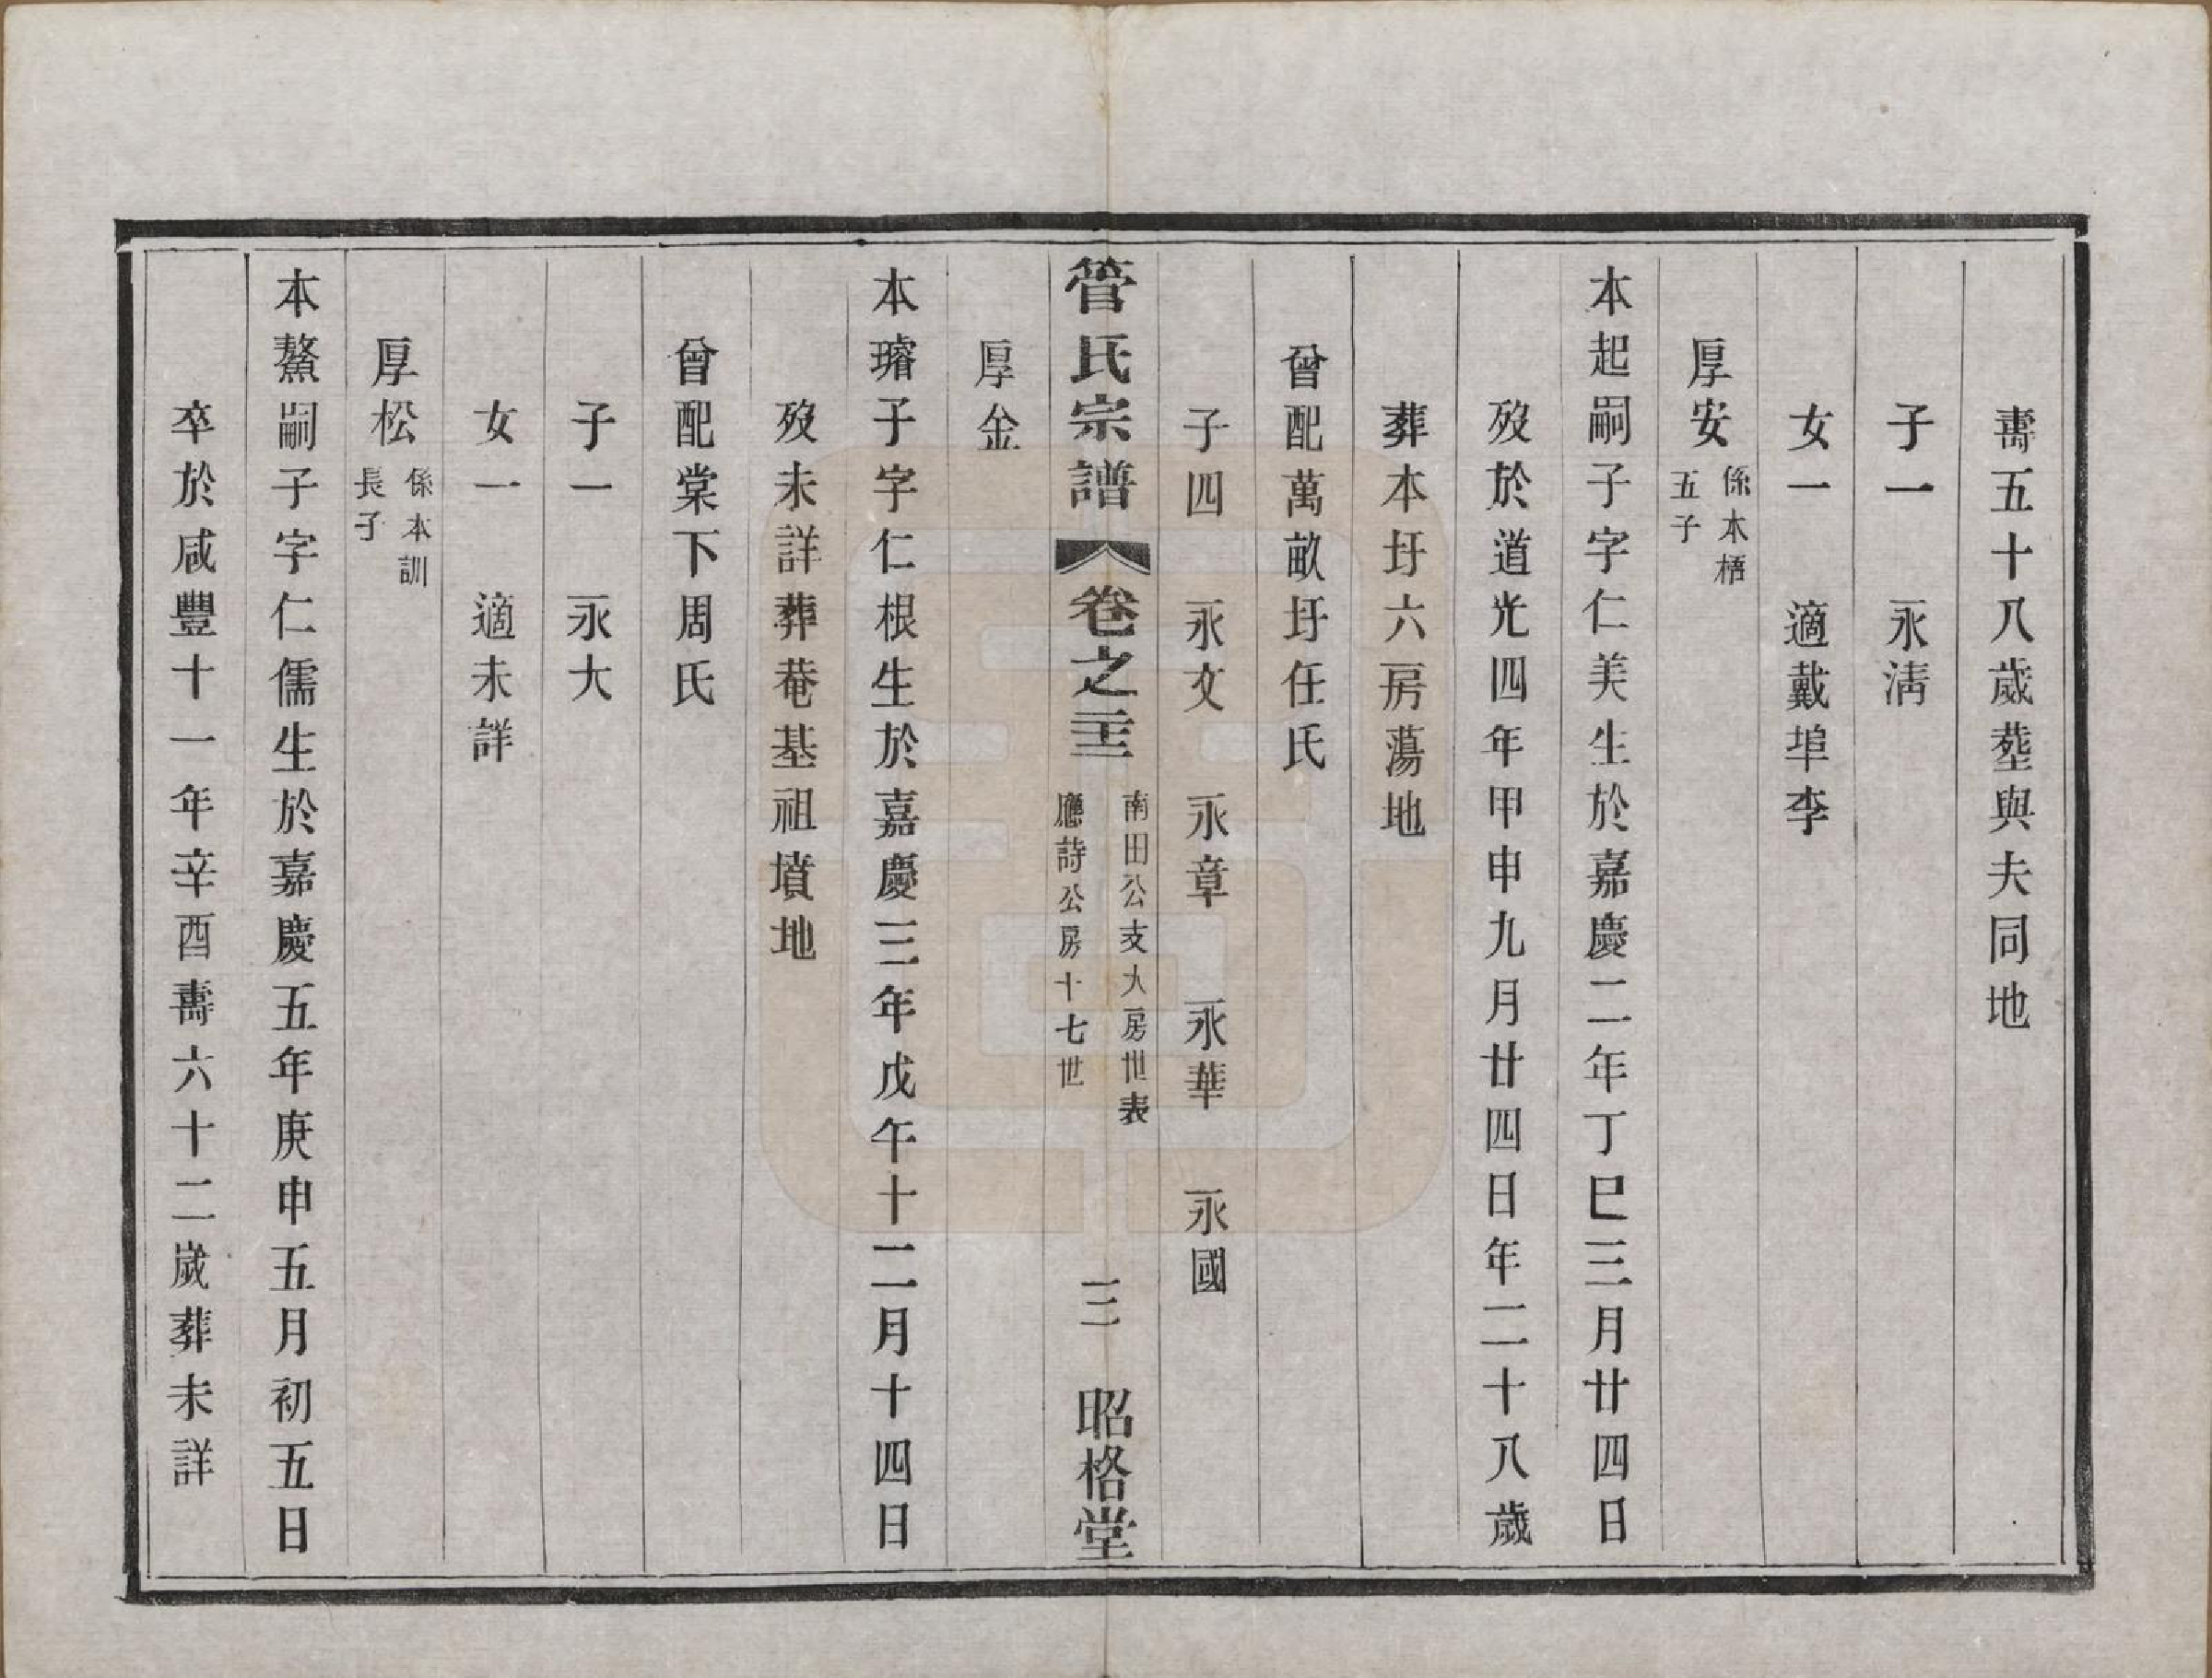 壽五十八歲塟與夫同地
子一　永淸
女一　適戴埠李
厚安 係本梧五子
本起嗣子字仁美生於嘉慶二年丁巳三月廿四日
歿於道光四年甲申九月廿四日年二十八歲
葬本圩六房蕩地
曾配萬畝圩任氏
子四　永文　永章　永華　永國
管氏宗譜 卷之二十三 南田公支大房世表 應詩公房十七世 三 昭格堂
厚金
本璿子字仁根生於嘉慶三年戊午十二月十四日
歿未詳葬菴基祖墳地
曾配棠下周氏
子一　永大
女一　適未詳
厚松 係本訓長子
本鰲嗣子字仁儒生於嘉慶五年庚申五月初五日
卒於咸豐十一年辛酉壽六十二歲葬未詳